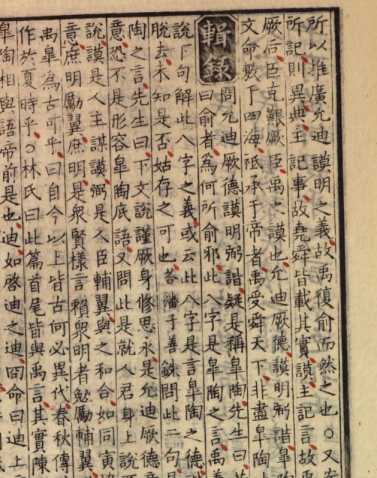 所以推廣允迪謨明之義故禹復俞而然之也○又
所記則異典主記事故堯舜皆載其實謨主記言故
厥后臣克艱厥臣禹之謨也允迪厥德謨明弼諧皋
文命敷于四海祗承于帝者禹受舜天下非盡皋陶
輯錄
問允迪厥德謨明弼諧疑是稱皋陶先生曰
曰俞者爲何所俞邪此八字是皋陶之言禹
說下句解此八字之義或云此八字是言皋陶之德
脫去未知是否姑存之可也答潘子善銖問此二句是
陶之言先生曰下文說謹厥身修思永是允迪厥德
意恐不是形容皋陶底語又問此是就人君身上說
說謨是人主謀謨弼是人臣輔翼與之和合如同寅
章庶明勵翼庶明是衆賢樣言賴衆明者勉勵輔翼
禹皋爲古可乎曰自今以上皆古何必異代春秋傳
作於夏時乎○林氏曰此篇首尾皆與禹言其實陳
皋陶相與語帝前是也迪如啓迪之迪冏命曰迪上